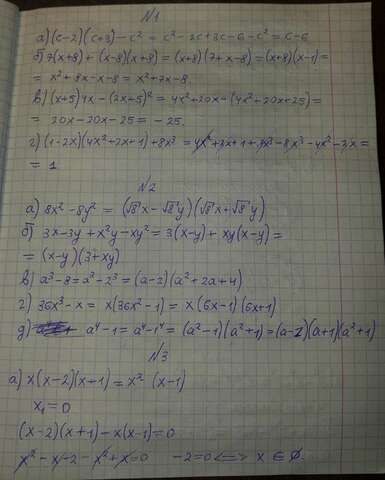 N1
а) (c-2)(c+3) - c² = c² - 2c + 3c - 6 - c² = c - 6
б) 7(x+8) + (x-8)(x+8) = (x+8)(7+x-8) = (x+8)(x-1) =
= x² + 8x - x - 8 = x² + 7x - 8.
в) (x+5)4x - (2x+5)² = 4x² + 20x - (4x² + 20x + 25) =
= 20x - 20x - 25 = -25.
г) (1-2x)(4x² + 2x + 1) + 8x³ = 4x² + 2x + 1 + 8x³ - 8x³ - 4x² - 2x =
= 1
N2
а) 8x² - 8y² = (√8x - √8y)(√8x + √8y)
б) 3x - 3y + x²y - xy² = 3(x-y) + xy(x-y) =
= (x-y)(3+xy)
в) a³ - 8 = a³ - 2³ = (a-2)(a² + 2a + 4)
г) 36x³ - x = x(36x² - 1) = x(6x-1)(6x+1)
д) a⁴ - 1 = a⁴ - 1⁴ = (a² - 1)(a² + 1) = (a-1)(a+1)(a²+1)
N3
а) x(x-2)(x+1) = x² (x-1)
x₁ = 0
(x-2)(x+1) - x(x-1) = 0
x² - x - 2 - x² + x = 0 -2 = 0 <=> x ∈ Ø.